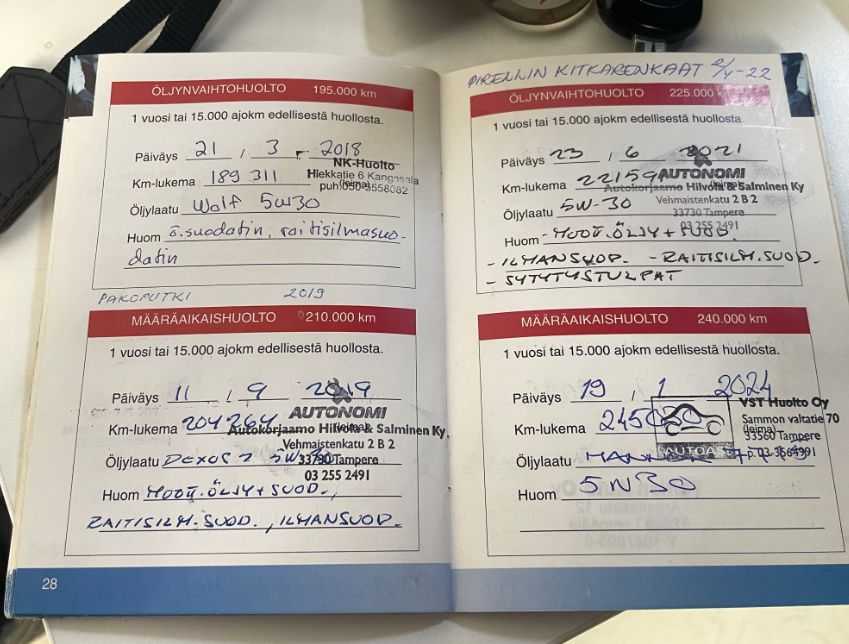 ÖLJYNVAIHTOHUOLTO 195.000 km
1 vuosi tai 15.000 ajokm edellisestä huollosta.
Päiväys 21 / 3 - 2018
NK-Huolto
Km-lukema 189 311 Hiekkatie 6 Kangasala
(leima)
puh. 050-5558082
Öljylaatu Wolf 5W30
Huom ö.suodatin, raitisilmasuo-
datin
PAKOPUTKI 2019
MÄÄRÄAIKAISHUOLTO 210.000 km
1 vuosi tai 15.000 ajokm edellisestä huollosta.
Päiväys 11 / 9 2019
AUTONOMI
Km-lukema 204264 (leima)
Autokorjaamo Hilvola & Salminen Ky
Vehmaistenkatu 2 B 2
Öljylaatu DEXOS 2 5W30 33730 Tampere
03 255 2491
Huom MOOT.ÖLJY+SUOD.,
RAITISILM.SUOD., ILMANSUOD.
28
PIRELLIN KITKARENKAAT 2/4-22
ÖLJYNVAIHTOHUOLTO 225.000 km
1 vuosi tai 15.000 ajokm edellisestä huollosta.
Päiväys 23 / 6 2021
AUTONOMI
Km-lukema 22159 (leima)
Autokorjaamo Hilvola & Salminen Ky
Vehmaistenkatu 2 B 2
Öljylaatu 5W-30 33730 Tampere
03 255 2491
Huom -MOOT.ÖLJY+SUOD.
-ILMANSUOD. -RAITISILM.SUOD.
-SYTYTYSTULPAT
MÄÄRÄAIKAISHUOLTO 240.000 km
1 vuosi tai 15.000 ajokm edellisestä huollosta.
Päiväys 19 / 1 2024
YST Huolto Oy
Km-lukema 245030 Sammon valtatie 70
(leima)
33560 Tampere
AUTOA
Öljylaatu p. 03-3664991
Huom 5N30